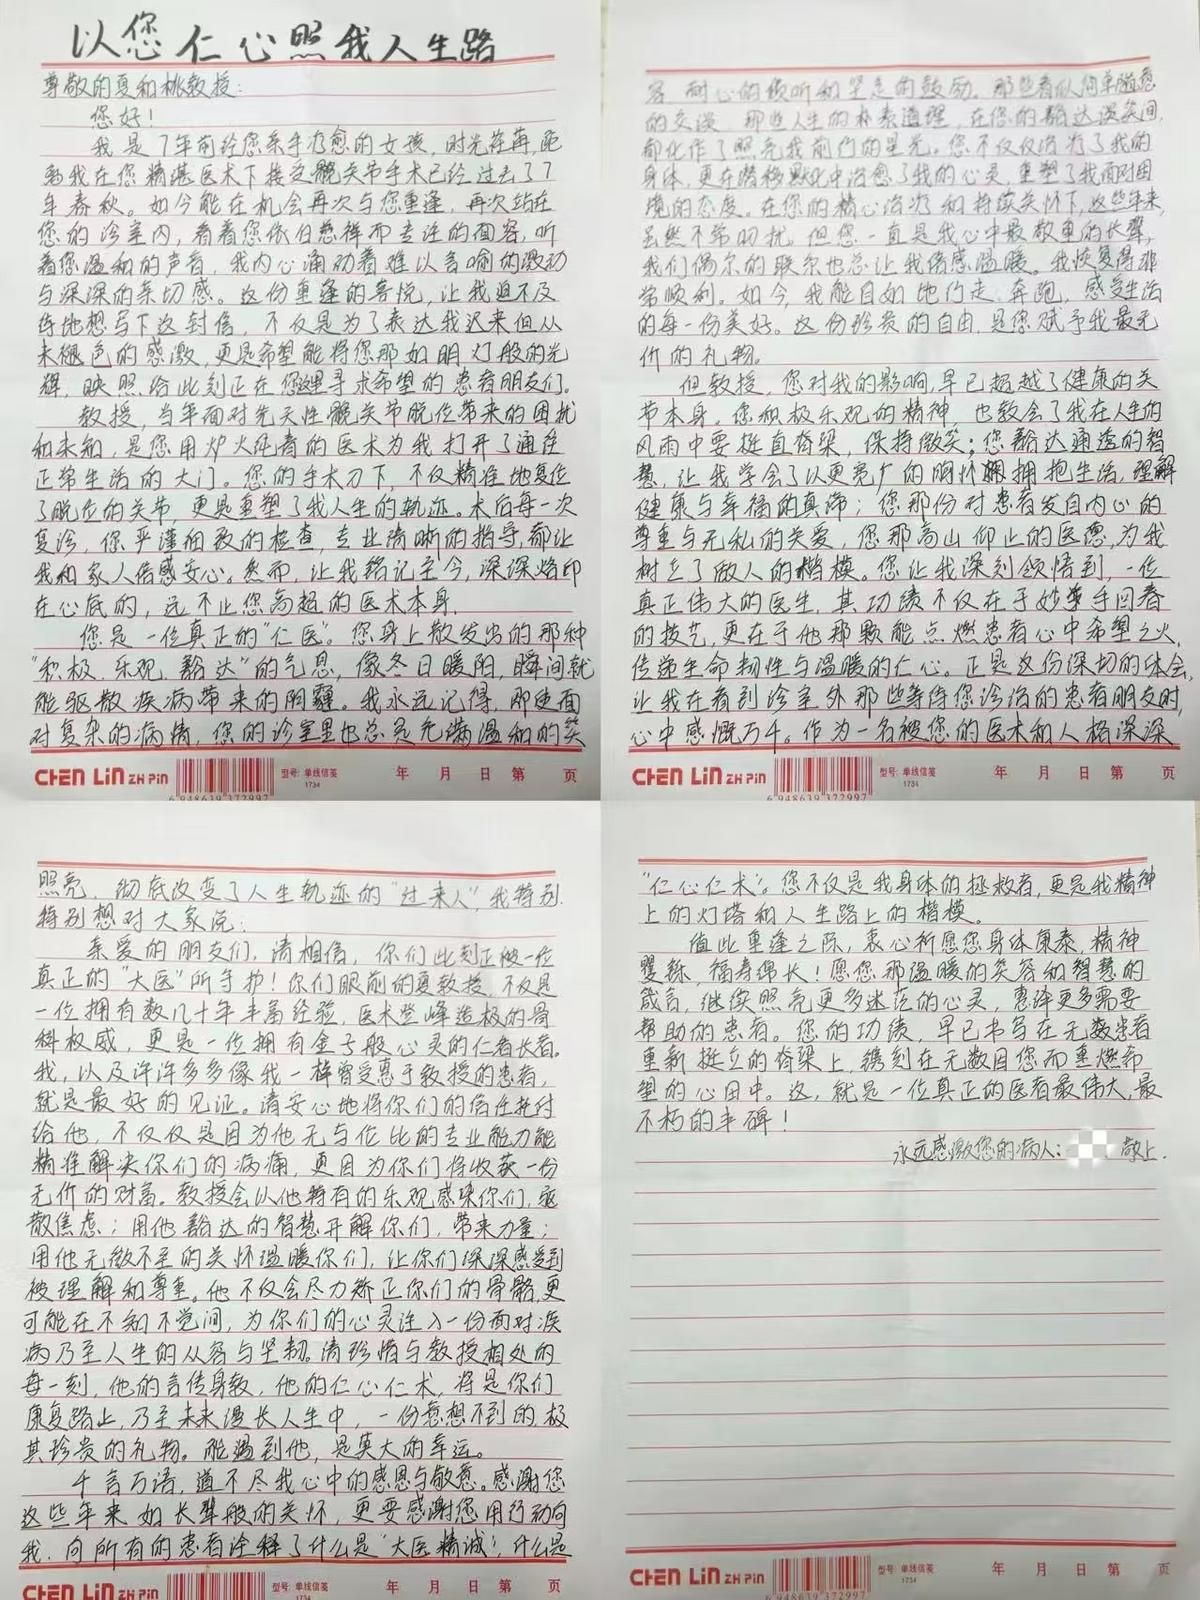 以您仁心照我人生路
尊敬的夏和桃教授：
您好！
我是7年前经您亲手治愈的女孩，时光荏苒，距
离我在您精湛医术下接受髋关节手术已经过去了7
年春秋。如今能在机会再次与您重逢，再次站在
您的诊室内，看着您依旧慈祥而专注的面容，听
着您温和的声音，我内心涌动着难以言喻的激动
与深深的亲切感。这份重逢的喜悦，让我迫不及
待地想写下这封信，不仅是为了表达我迟来但从
未褪色的感激，更是希望能将您那如明灯般的光
辉，映照给此刻正在您这里寻求希望的患者朋友们。
教授，当年面对先天性髋关节脱位带来的困扰
和未知，是您用炉火纯青的医术为我打开了通往
正常生活的大门。您的手术刀下，不仅精准地复位
了脱位的关节，更是重塑了我人生的轨迹。术后每一次
复诊，您严谨细致的检查，专业清晰的指导，都让
我和家人倍感安心。然而，让我铭记至今，深深烙印
在心底的，远不止您高超的医术本身。
您是一位真正的“仁医”。您身上散发出的那种
“积极、乐观、豁达”的气息，像冬日暖阳，瞬间就
能驱散疾病带来的阴霾。我永远记得，即使面
对复杂的病情，您的诊室里也总是充满温和的笑
CHEN LIN ZH PIN
型号：单线信笺
1734
年 月 日 第 页
6 948639 372997
容，耐心的倾听和坚定的鼓励。那些看似简单随意
的交谈，那些人生的朴素道理，在您的豁达谈笑间，
都化作了照亮我前行的星光。您不仅仅治疗了我的
身体，更在潜移默化中治愈了我的心灵，重塑了我面对困
境的态度。在您的精心治疗和持续关怀下，这些年来，
虽然不常叨扰，但您一直是我心中最敬重的长辈，
我们偶尔的联系也总让我倍感温暖。我恢复得非
常顺利。如今，我能自如地行走、奔跑，感受生活
的每一份美好。这份珍贵的自由，是您赋予我最无
价的礼物。
但教授，您对我的影响，早已超越了健康的关
节本身。您积极乐观的精神，也教会了我在人生的
风雨中要挺直脊梁，保持微笑；您豁达通透的智
慧，让我学会了以更宽广的胸怀拥抱生活，理解
健康与幸福的真谛；您那份对患者发自内心的
尊重与无私的关爱，您那高山仰止的医德，为我
树立了做人的楷模。您让我深刻领悟到，一位
真正伟大的医生，其功绩不仅在于妙手回春
的技艺，更在于他那颗能点燃患者心中希望之火，
传递生命韧性与温暖的仁心。正是这份深切的体会，
让我在看到诊室外那些等待您诊治的患者朋友时，
心中感慨万千。作为一名被您的医术和人格深深
CHEN LIN ZH PIN
型号：单线信笺
1734
年 月 日 第 页
6 948639 372997
照亮、彻底改变了人生轨迹的“过来人”，我特别、
特别想对大家说：
亲爱的朋友们，请相信，你们此刻正被一位
真正的“大医”所守护！你们眼前的夏教授，不仅是
一位拥有数几十年丰富经验，医术登峰造极的骨
科权威，更是一位拥有金子般心灵的仁者长者。
我，以及许许多多像我一样曾受惠于教授的患者，
就是最好的见证。请安心地将你们的信任托付
给他，不仅仅是因为他无与伦比的专业能力能
精准解决你们的病痛，更因为你们将收获一份
无价的财富。教授会以他特有的乐观感染你们，驱
散焦虑；用他豁达的智慧开解你们，带来力量；
用他无微不至的关怀温暖你们，让你们深深感受到
被理解和尊重。他不仅会尽力矫正你们的骨骼，更
可能在不知不觉间，为你们的心灵注入一份面对疾
病乃至人生的从容与坚韧。请珍惜与教授相处的
每一刻，他的言传身教，他的仁心仁术，将是你们
康复路上，乃至未来漫长人生中，一份意想不到的，极
其珍贵的礼物。能遇到他，是莫大的幸运。
千言万语，道不尽我心中的感恩与敬意。感谢您
这些年来如长辈般的关怀，更要感谢您用行动向
我、向所有的患者诠释了什么是“大医精诚”，什么是
CHEN LIN ZH PIN
型号：单线信笺
1734
年 月 日 第 页
“仁心仁术”。您不仅是我身体的拯救者，更是我精神
上的灯塔和人生路上的楷模。
值此重逢之际，衷心祈愿您身体康泰，精神
矍铄，福寿绵长！愿您那温暖的笑容和智慧的
箴言，继续照亮更多迷茫的心灵，惠泽更多需要
帮助的患者。您的功绩，早已书写在无数患者
重新挺立的脊梁上，镌刻在无数因您而重燃希
望的心田中。这，就是一位真正的医者最伟大、最
不朽的丰碑！
永远感激您的病人： 敬上．
CHEN LIN ZH PIN
型号：单线信笺
1734
年 月 日 第 页
6 948639 372997